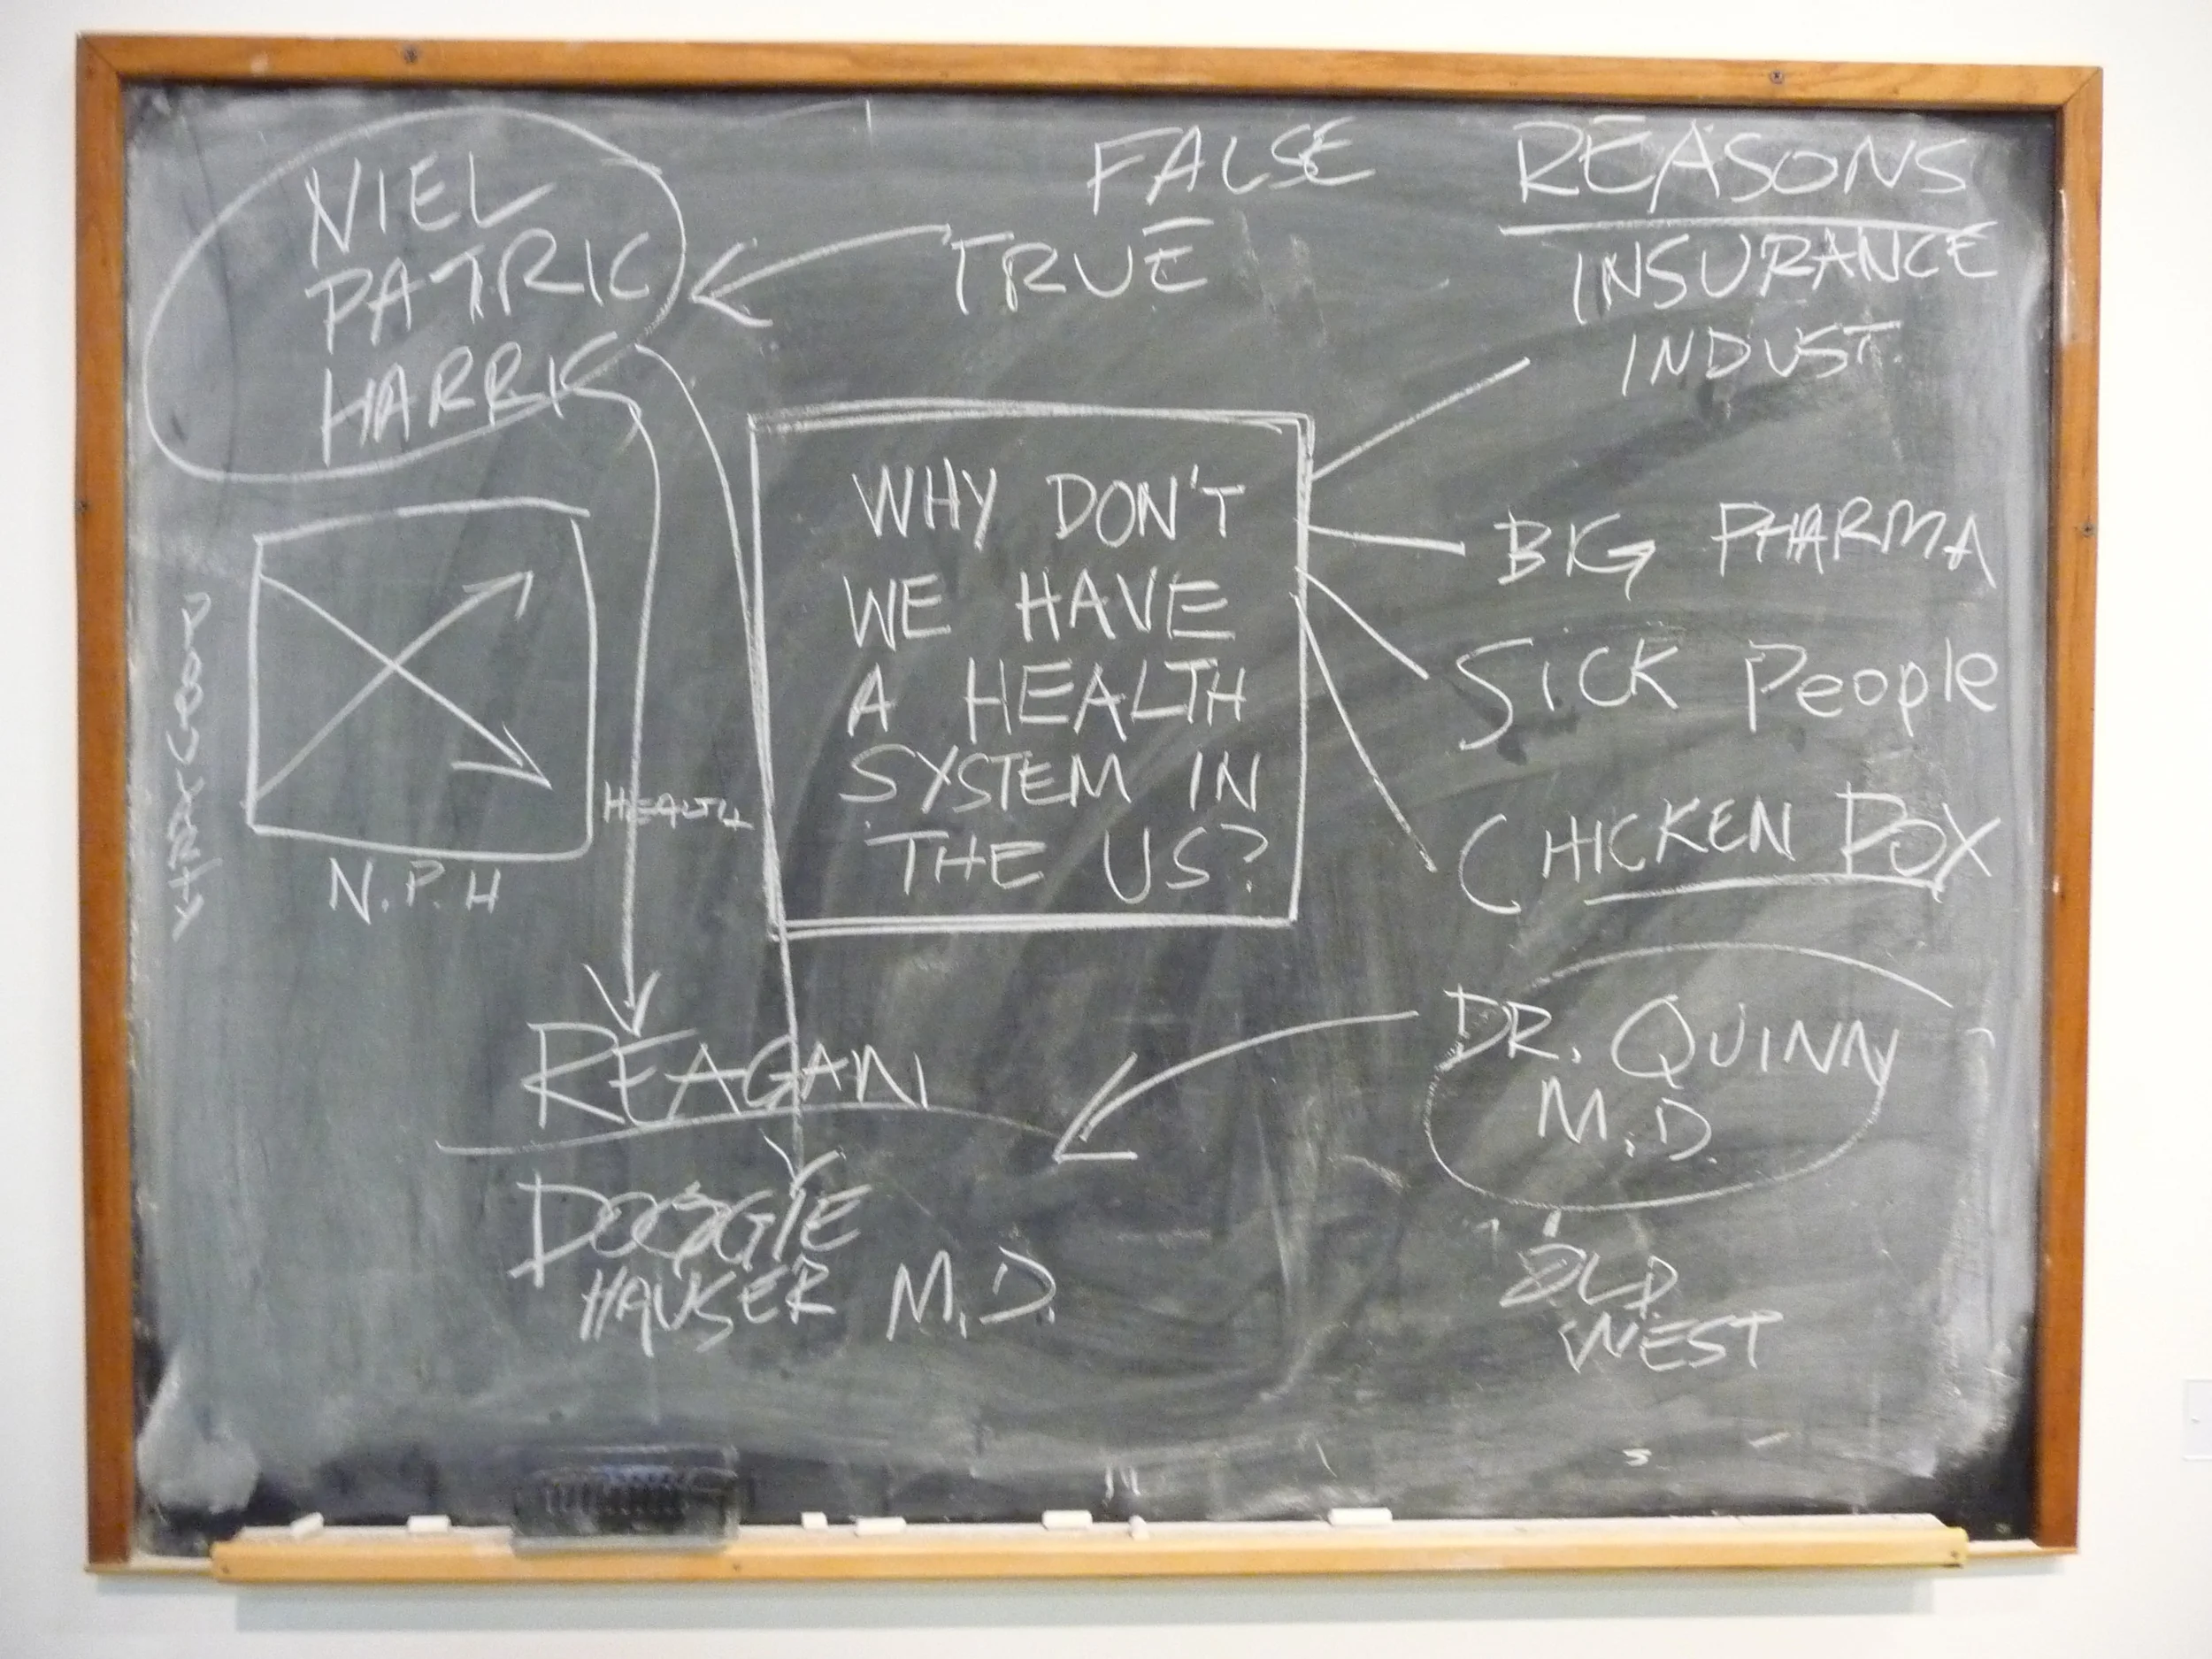 NIEL
PATRIC
HARRIS
FALSE
TRUE
REASONS
INSURANCE
INDUST.
WHY DON'T
WE HAVE
A HEALTH
SYSTEM IN
THE US?
BIG PHARMA
SICK People
CHICKEN POX
HEALTH
N.P.H
REAGAN
DOOGIE
HAUSER M.D.
DR. QUINN
M.D.
OLD
WEST